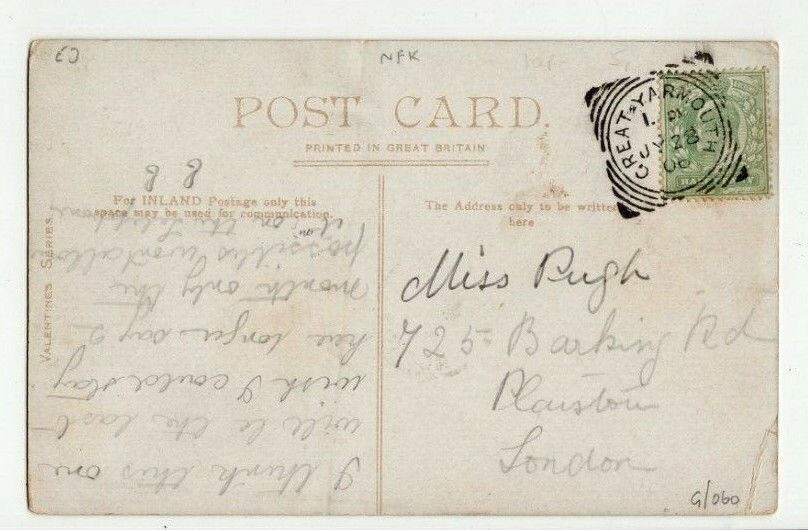 EJ
NFK
POST CARD.
PRINTED IN GREAT BRITAIN
GREAT YARMOUTH
28
06
For INLAND Postage only this
space may be used for communication.
The Address only to be written
here
VALENTINES SERIES
I think this one
will be the last
wish I could stay
here longer say 2
month only the
possible
on the
8 8
Miss Pugh
725 Barking Rd
Plaistow
London
G/060